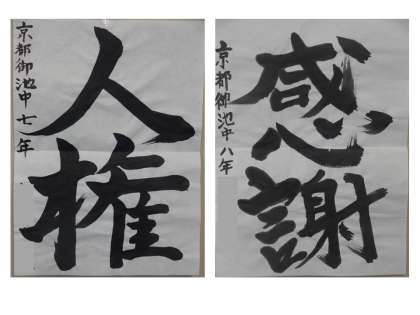 人権
京都御池中七年
感謝
京都御池中八年